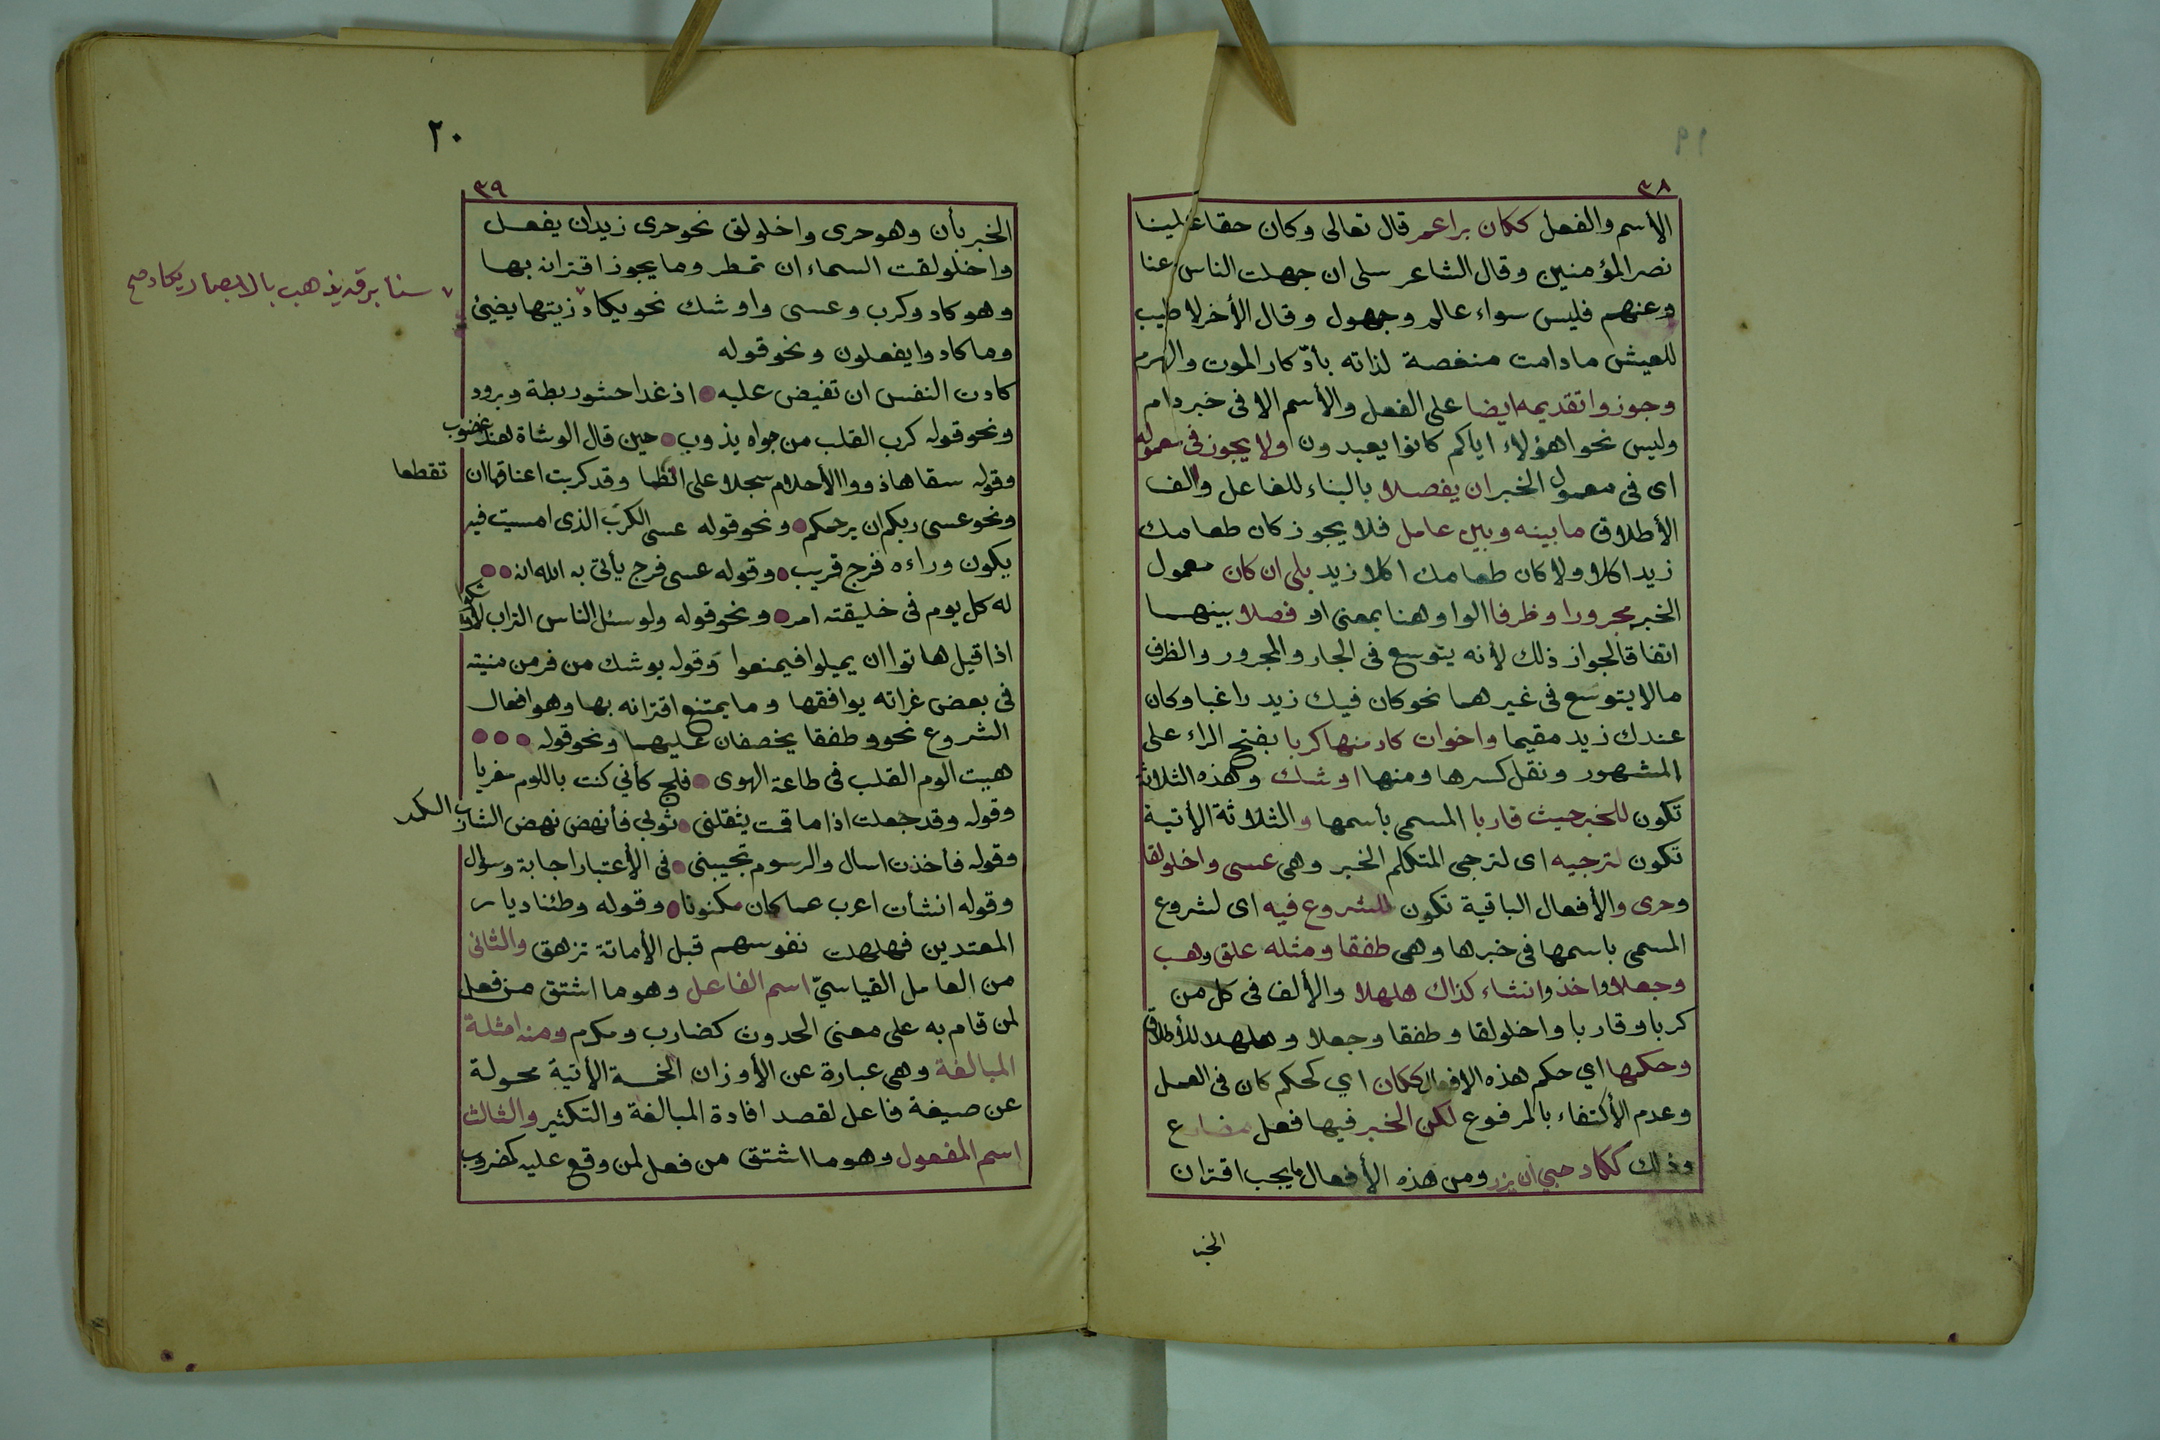 ١٩
٣٨
الأسم والفعل ككان برا عمر قال تعالى وكان حقا علينا
نصر المؤمنين وقال الشاعر سلى ان جهلت الناس عنا
وعنهم فليس سواء عالم وجهول وقال الأخر لا طيب
للعيش ما دامت منغصة لذاته بأدّكار الموت والهرم
وجوزوا تقديمه ايضا على الفعل والأسم الا فى خبر دام
وليس نحو اهؤلاء اياكم كانوا يعبدون ولا يجوز فى معموله
اى فى معمول الخبر ان يفصلا بالبناء للفاعل والف
الأطلاق ما بينه وبين عامل فلا يجوز كان طعامك
زيدا كلا ولا كان طعامك اكلا زيد بلى ان كان معمول
الخبر مجرورا وظرفا الواو هنا بمعنى او فصلا بينهما
اتفاقا لجواز ذلك لأنه يتوسع فى الجار والمجرور والظرف
مالا يتوسع فى غيرهما نحو كان فيك زيد راغبا وكان
عندك زيد مقيما واخوات كاد منها كربا بفتح الراء على
المشهور ونقل كسرها ومنها اوشك وهذه الثلاثة
تكون للخبر حيث قاربا المسمى بأسمها والثلاثة الأتية
تكون لترجيه اى لترجى المتكلم الخبر وهى عسى واخلولقا
وحرى والأفعال الباقية تكون للشروع فيه اى لشروع
المسمى باسمها فى خبرها وهى طفقا ومثله علق وهب
وجعلا واخذ وانشاء كذاك هلهلا والألف فى كل من
كربا وقاربا واخلولقا وطفقا وجعلا وهلهلا للأطلاق
وحكمها اي حكم هذه الافعال ككان اي كحكم كان فى العمل
وعدم الأكتفاء بالمرفوع لكن الخبر فيها فعل مضارع
وذلك ككاد حبي ان يزر ومن هذه الأفعال ما يجب اقتران
الخبر
٢٠
٣٩
الخبر بأن وهو حرى واخلولق نحو حرى زيدان يفعل
واخلولقت السماء ان تمطر وما يجوز اقترانه بها
وهو كاد وكرب وعسى واوشك نحو يكاد زيتها يضئ
سنا برقه يذهب بالابصار يكاد صح
وما كادوا يفعلون ونحو قوله
كادت النفس ان تفيض عليه اذ غدا حشو ريطة وبرود
ونحو قوله كرب القلب من جواه يذوب حين قال الوشاة هند غضوب
وقوله سقاها ذووا الأحلام سجلا على الظما وقد كربت اعناقها ان تقطعا
ونحو عسى ربكم ان يرحمكم ونحو قوله عسى الكرب الذى امسيت فيه
يكون وراءه فرج قريب وقوله عسى فرج يأتى به الله انه
له كل يوم فى خليقته امر ونحو قوله ولو سئل الناس التراب لأوشكوا
اذا قيل هاتوا ان يميلوا فيمنعوا وقوله يوشك من فر من منيته
فى بعض غراته يوافقها وما يمتنع اقترانه بها وهو افعال
الشروع نحو وطفقا يخصفان عليهما ونحو قوله
هببت الوم القلب فى طاعة الهوى فلج كأني كنت باللوم مغريا
وقوله وقد جعلت اذا ما قمت يثقلنى ثوبي فأنهض نهض الشارب السكر
وقوله فأخذت اسال والرسوم تجيبنى فى الأعتبار اجابة وسؤال
وقوله انشأت اعرب عما كان مكنونا وقوله وطئنا ديار
المعتدين فهلهلت نفوسهم قبل الأماتة تزهق والثانى
من العامل القياسيّ اسم الفاعل وهو ما اشتق من فعل
لمن قام به على معنى الحدوث كضارب ومكرم ومنه امثلة
المبالغة وهى عبارة عن الأوزان الخمسة الأتية محولة
عن صيغة فاعل لقصد افادة المبالغة والتكثير والثالث
اسم المفعول وهو ما اشتق من فعل لمن وقع عليه كضروب